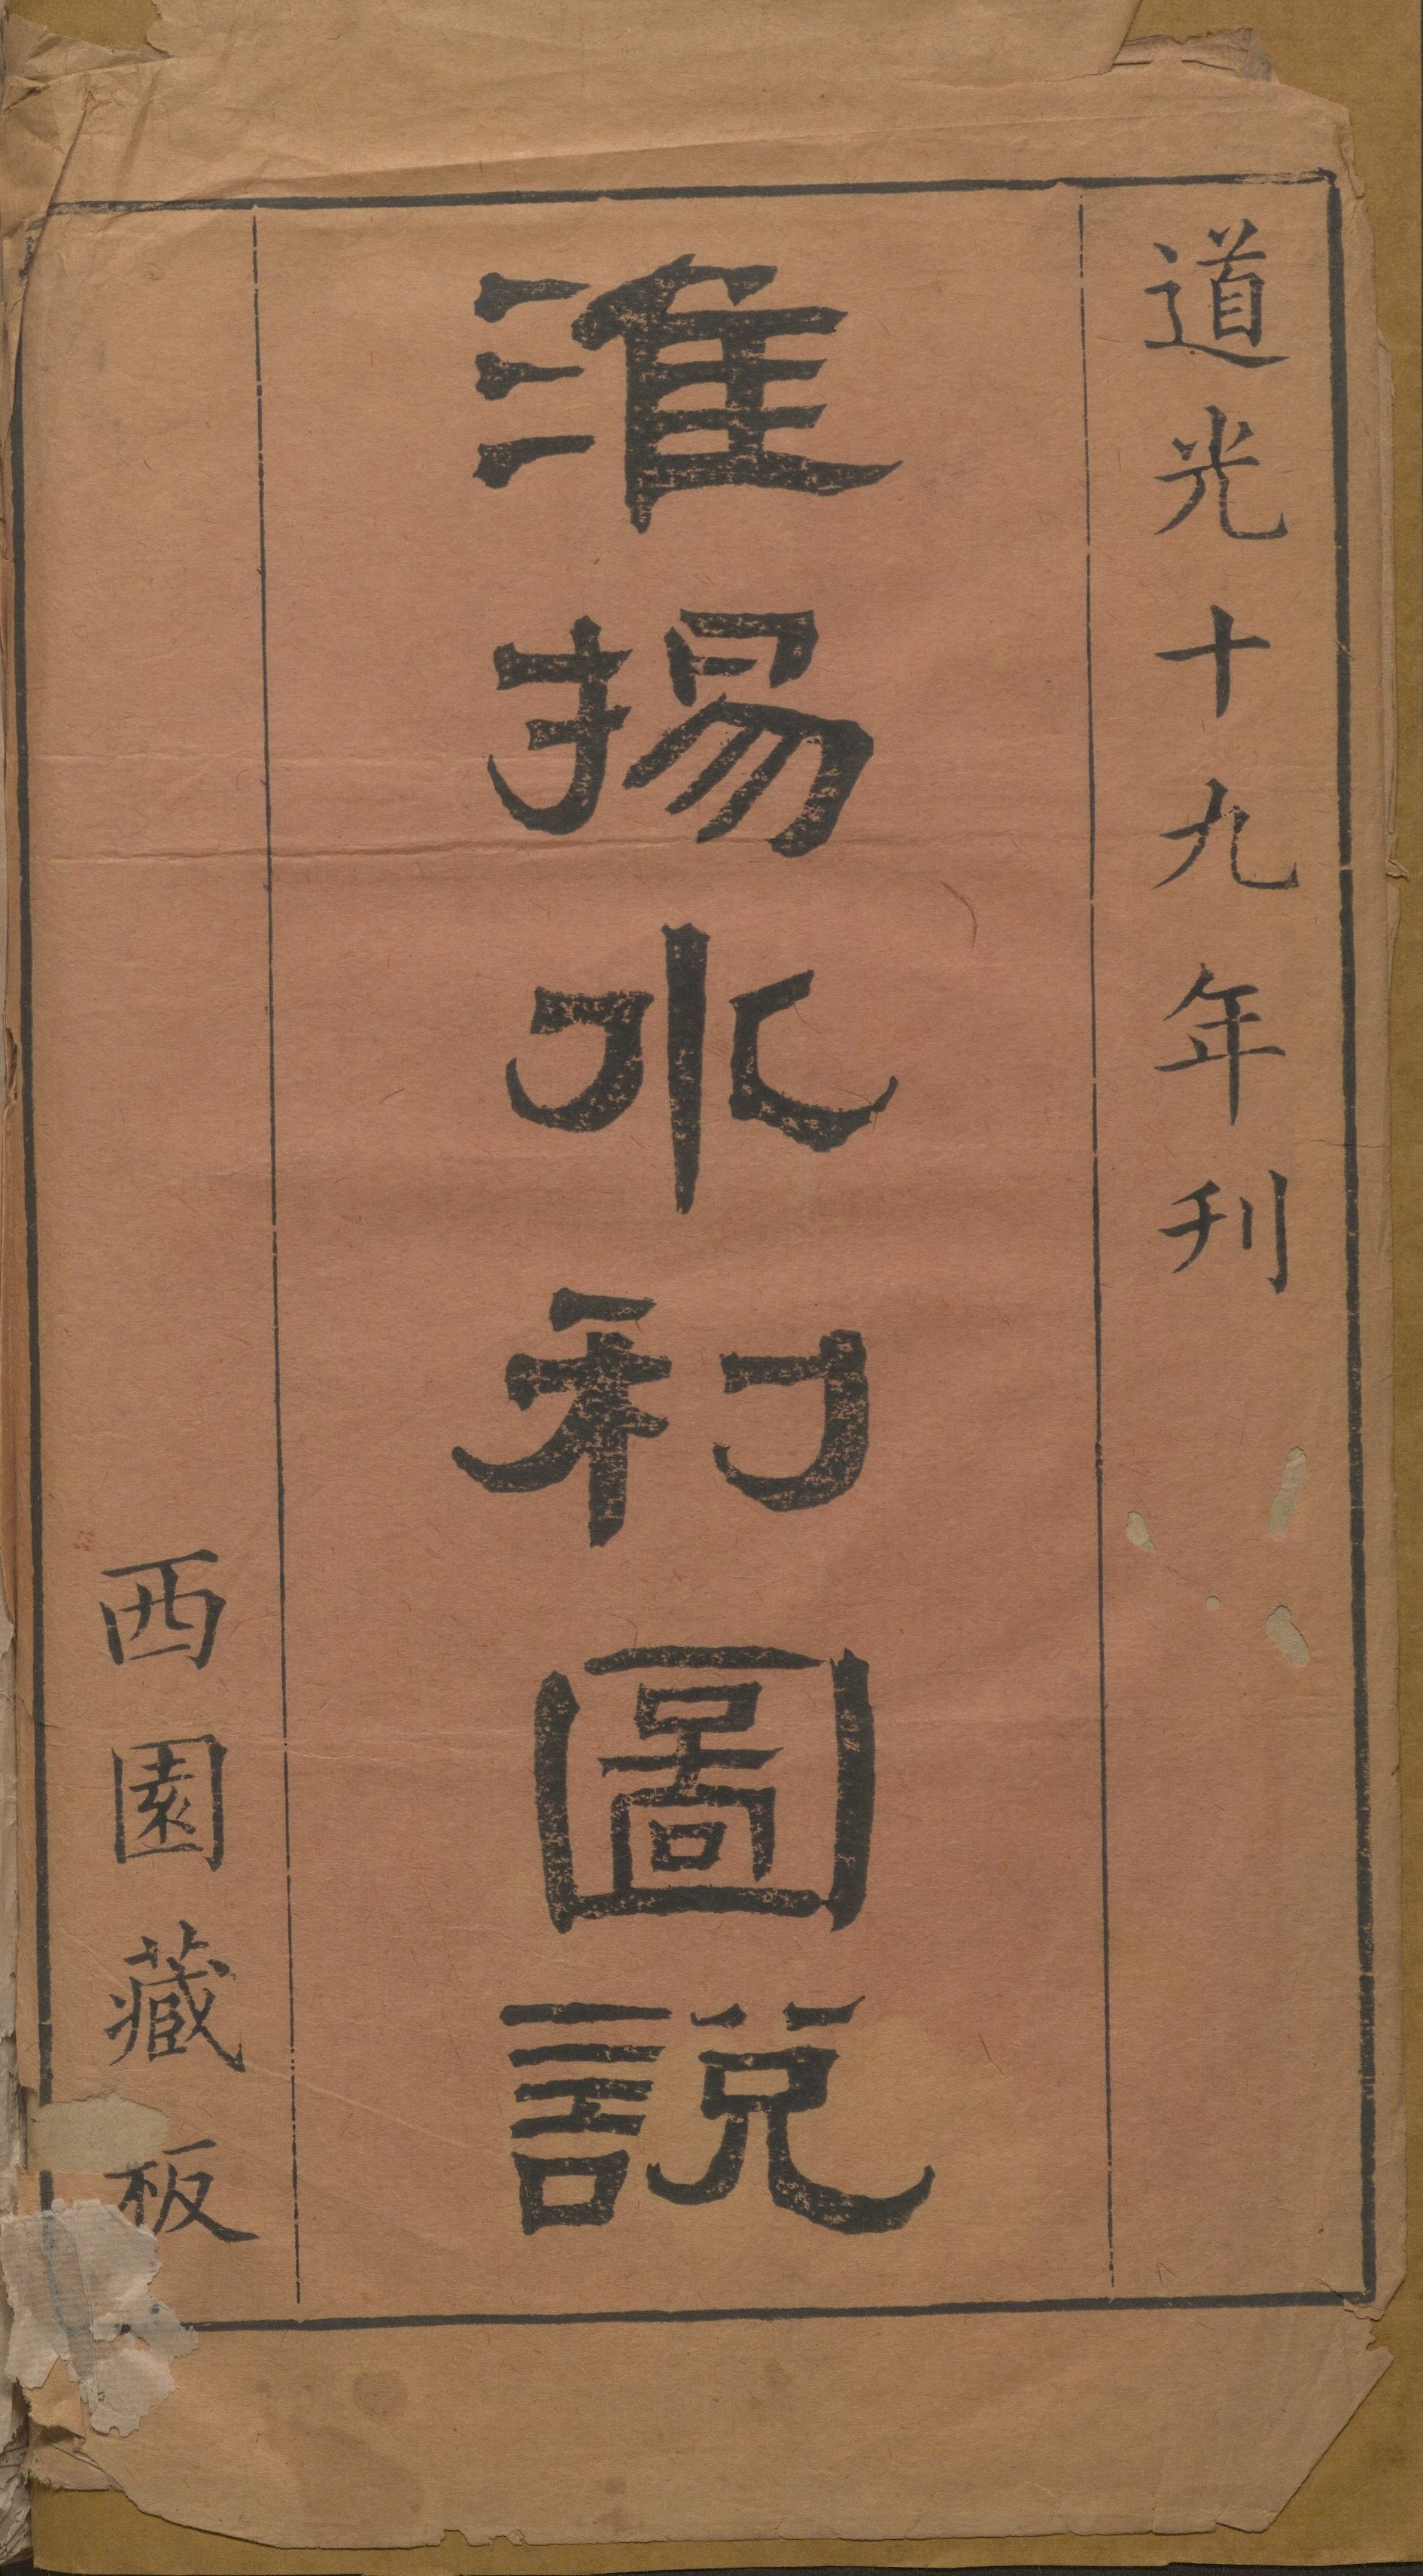 道光十九年刊
淮揚水利圖說
西園藏板